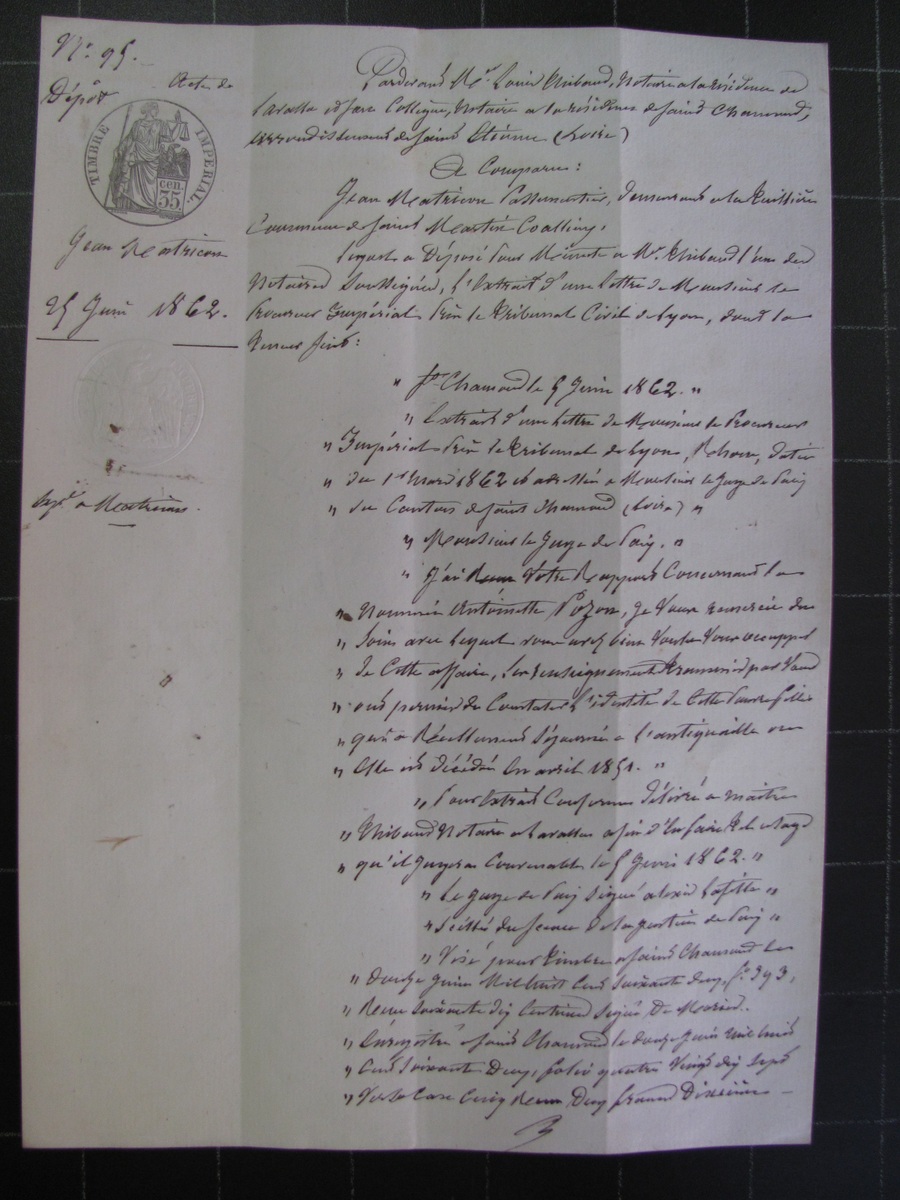 N° 95.
Acte de
Dépôt
TIMBRE IMPÉRIAL
35 cen.
Jean Matricon
25 Juin 1862.
Exp. a Matricon.
Pardevant Me. Louis Thibaud, Notaire a la résidence de
Lavalla et son Collegue, Notaire a la résidence de Saint Chamond,
arrondissement de Saint Etienne (Loire)
A Comparu:
Jean Matricon Passementier, demeurant a la
Commune de Saint Martin Coallieu,
Lequel a Déposé pour Minute a Me. Thibaud l'un des
Notaires Soussignés, l'Extrait d'une lettre de Monsieur le
Procureur Impérial Près le Tribunal Civil de Lyon, dont la
teneur suit:
" St. Chamond le 5 Juin 1862. "
" Extrait d'une lettre de Monsieur le Procureur
" Impérial Près le Tribunal de Lyon, Rhône, datée
" du 1er Mars 1862 et adressée a Monsieur le Juge de Paix
" du Canton de Saint Chamond (Loire) "
" Monsieur le Juge de Paix. "
" J'ai Reçu Votre Rapport Concernant la
" Nommée Antoinette Pozon, je Vous remercie des
" Soins avec lequel vous avez bien Voulu Vous occuper
" de Cette affaire, les renseignements transmis par Vous
" ont permis de Constater l'identité de Cette Pauvre fille
" qui a Réellement Séjournée a l'antiquaille ou
" Elle est décédée En avril 1851. "
" Pour Extrait Conforme délivré a maitre
" Thibaud Notaire a Lavalla afin d'En faire tel usage
" qu'il Jugera Convenable le 5 Juin 1862. "
" Le Juge de Paix Signé Lafitte "
" Scellé du Sceau de la Justice de Paix "
" Visé pour timbre a Saint Chamond le
" Douze Juin Mil huit Cent Soixante deux, f° 393,
" Reçu Soixante dix Centimes Signé
" Enregistré a Saint Chamond le douze Juin mil huit
" Cent Soixante Deux, folio quatre Vingt dix Sept
" Verso Case Cinq Reçu Deux francs Dixième